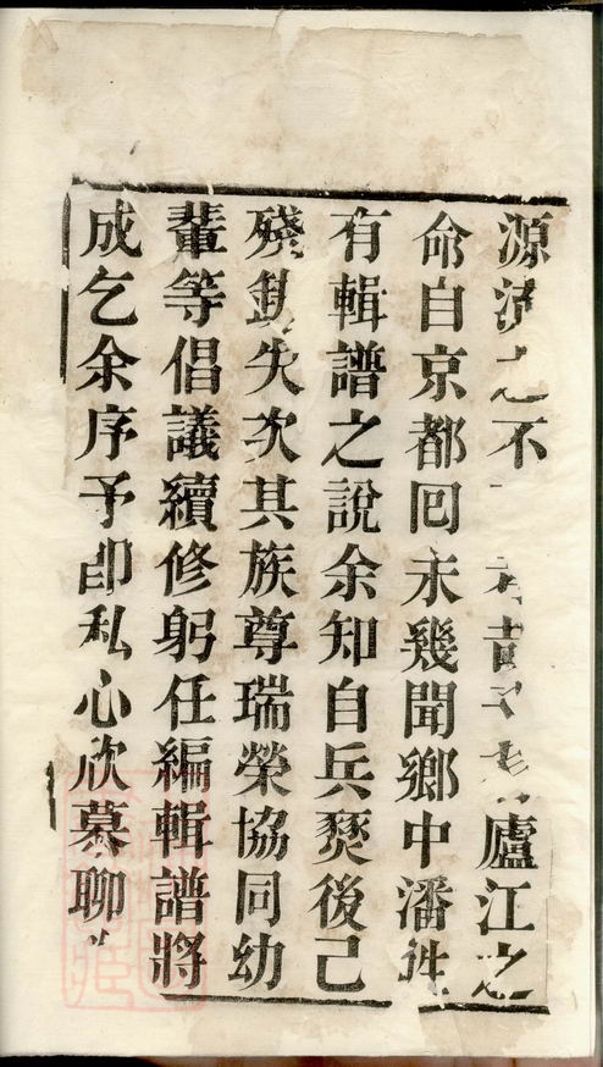 源 之不 廬江之
命自京都囘未幾聞鄉中潘姓
有輯譜之說余知自兵燹後己
殘缺失次其族尊瑞榮協同幼
輩等倡議續修躬任編輯譜將
成乞余序予卽私心欣慕聊